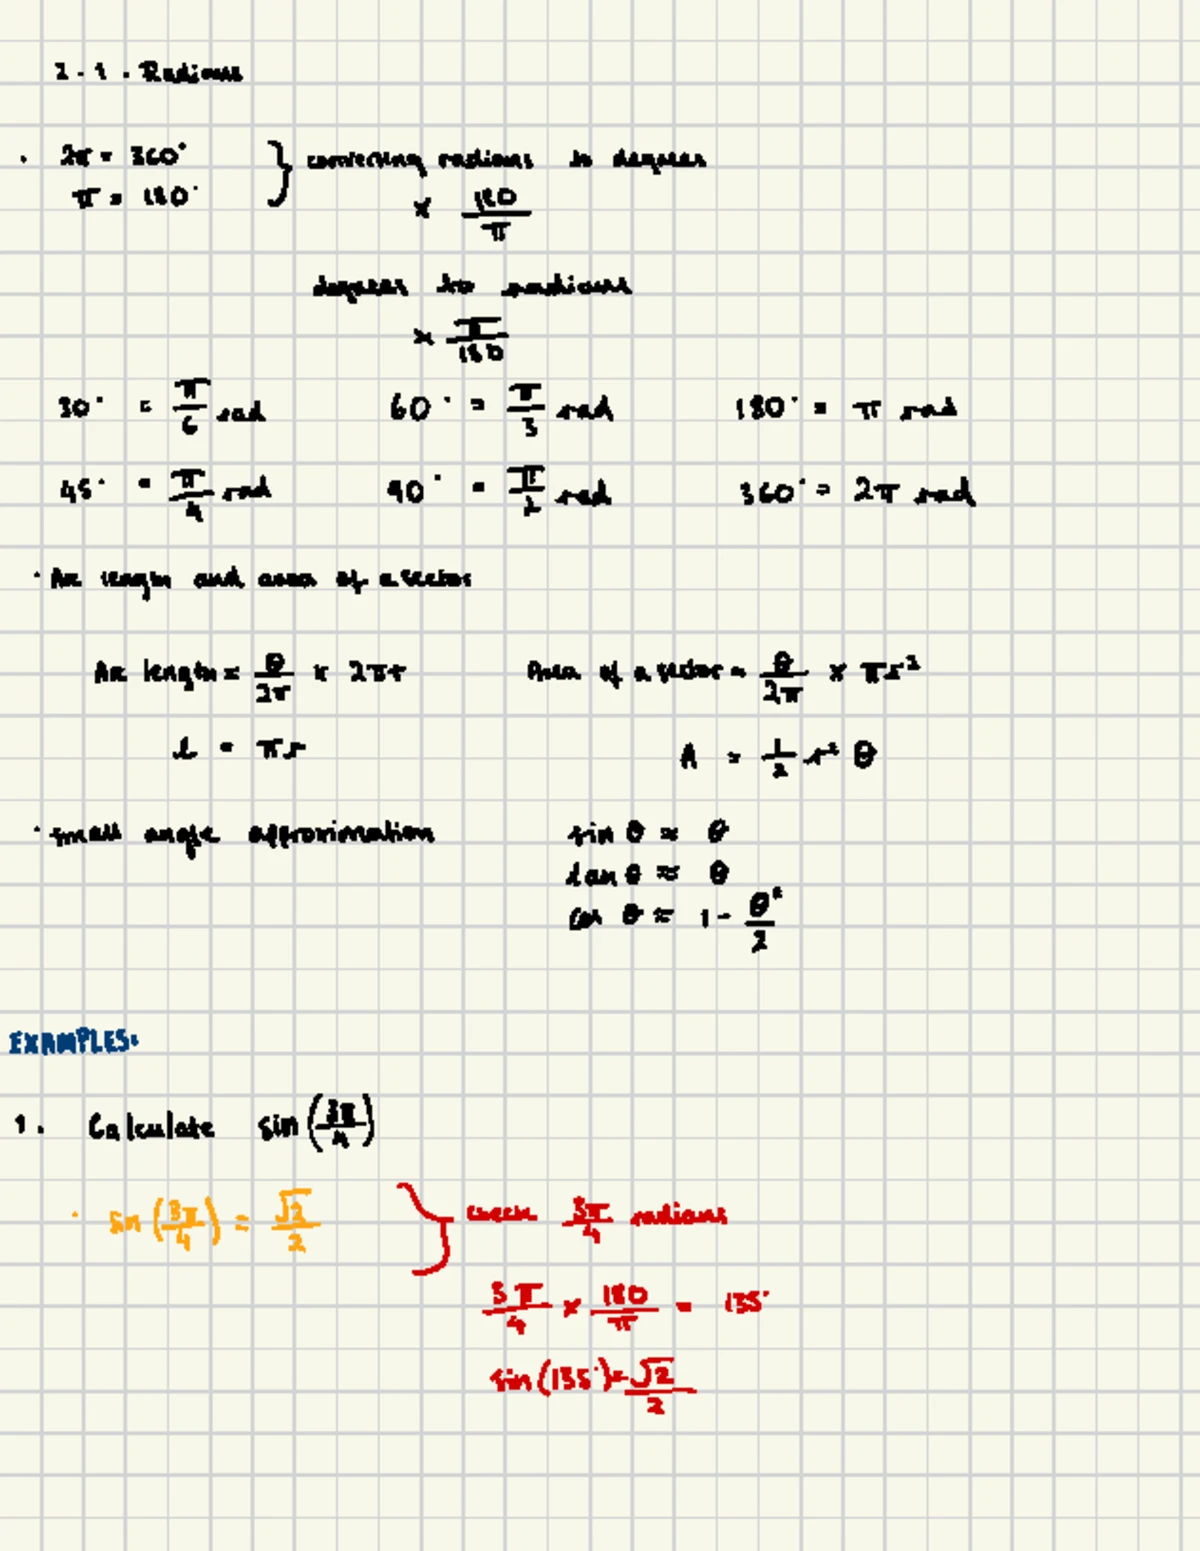 2-1. Radians
· 2π = 360° } converting radians to degrees
π = 180° × 180/π
degrees to radians
× π/180
30° = π/6 rad 60° = π/3 rad 180° = π rad
45° = π/4 rad 90° = π/2 rad 360° = 2π rad
· Arc length and area of a sector
Arc length = θ/2π × 2πr Area of a sector = θ/2π × πr²
l = πr A = 1/2 r² θ
· small angle approximation sin θ ≈ θ
tan θ ≈ θ
cos θ ≈ 1 - θ²/2
EXAMPLES:
1. Calculate sin (3π/4)
· sin (3π/4) = √2/2 } check 3π/4 radians
3π/4 × 180/π = 135°
sin (135°) = √2/2